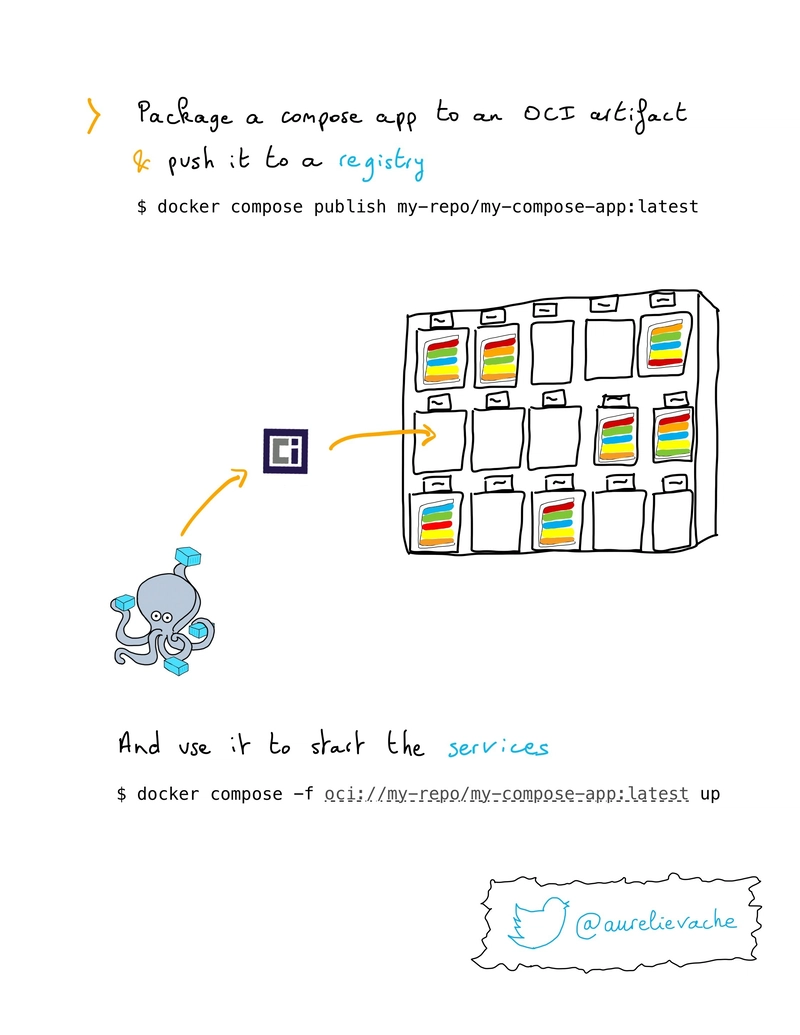 Package a compose app to an OCI artifact
& push it to a registry
$ docker compose publish my-repo/my-compose-app:latest
Ci
And use it to start the services
$ docker compose -f oci://my-repo/my-compose-app:latest up
@aurelievache